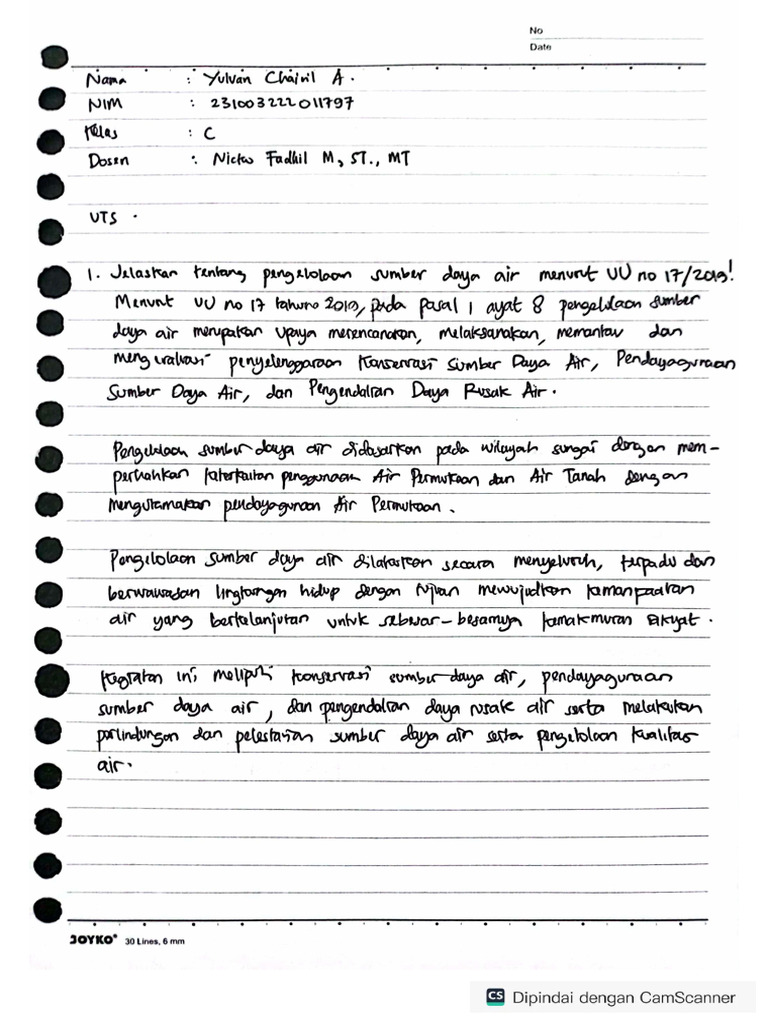 No
Date
Nama : Yulvan Chairil A.
NIM : 231003222011797
Kelas : C
Dosen : Nicko Fadhil M, ST., MT
UTS .
1. Jelaskan tentang pengelolaan sumber daya air menurut UU no 17/2019!
Menurut UU no 17 tahun 2019, pada pasal 1 ayat 8 pengelolaan sumber
daya air merupakan upaya merencanakan, melaksanakan, memantau dan
mengevaluasi penyelenggaraan Konservasi Sumber Daya Air, Pendayagunaan
Sumber Daya Air, dan Pengendalian Daya Rusak Air.
Pengelolaan sumber daya air didasarkan pada wilayah sungai dengan mem-
perhatikan keterkaitan penggunaan Air Permukaan dan Air Tanah dengan
mengutamakan pendayagunaan Air Permukaan.
Pengelolaan sumber daya air dilakukan secara menyeluruh, terpadu dan
berwawasan lingkungan hidup dengan tujuan mewujudkan kemanfaatan
air yang berkelanjutan untuk sebesar-besarnya kemakmuran rakyat.
Kegiatan ini meliputi konservasi sumber daya air, pendayagunaan
sumber daya air, dan pengendalian daya rusak air serta melakukan
perlindungan dan pelestarian sumber daya air serta pengelolaan kualitas
air.
JOYKO 30 Lines, 6 mm
CS Dipindai dengan CamScanner